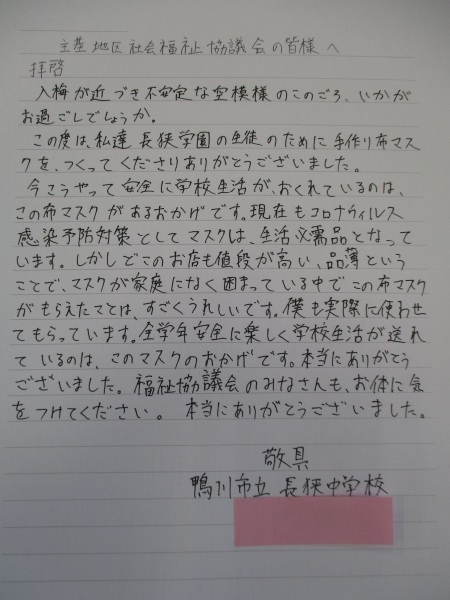 主基地区社会福祉協議会の皆様へ
拝啓
入梅が近づき不安定な空模様のこのごろ、いかが
お過ごしでしょうか。
この度は、私達長狭学園の生徒のために手作り布マス
クを、つくってくださりありがとうございました。
今こうやって安全に学校生活が、おくれているのは、
この布マスクがあるおかげです。現在もコロナウィルス
感染予防対策としてマスクは、生活必需品となって
います。しかしどこのお店も値段が高い、品薄という
ことで、マスクが家庭になく困まっている中でこの布マスク
がもらえたことは、すごくうれしいです。僕も実際に使わせ
てもらっています。全学年安全に楽しく学校生活が送れ
ているのは、このマスクのおかげです。本当にありがとう
ございました。福祉協議会のみなさんも、お体に気
をつけてください。本当にありがとうございました。
敬具
鴨川市立長狭中学校